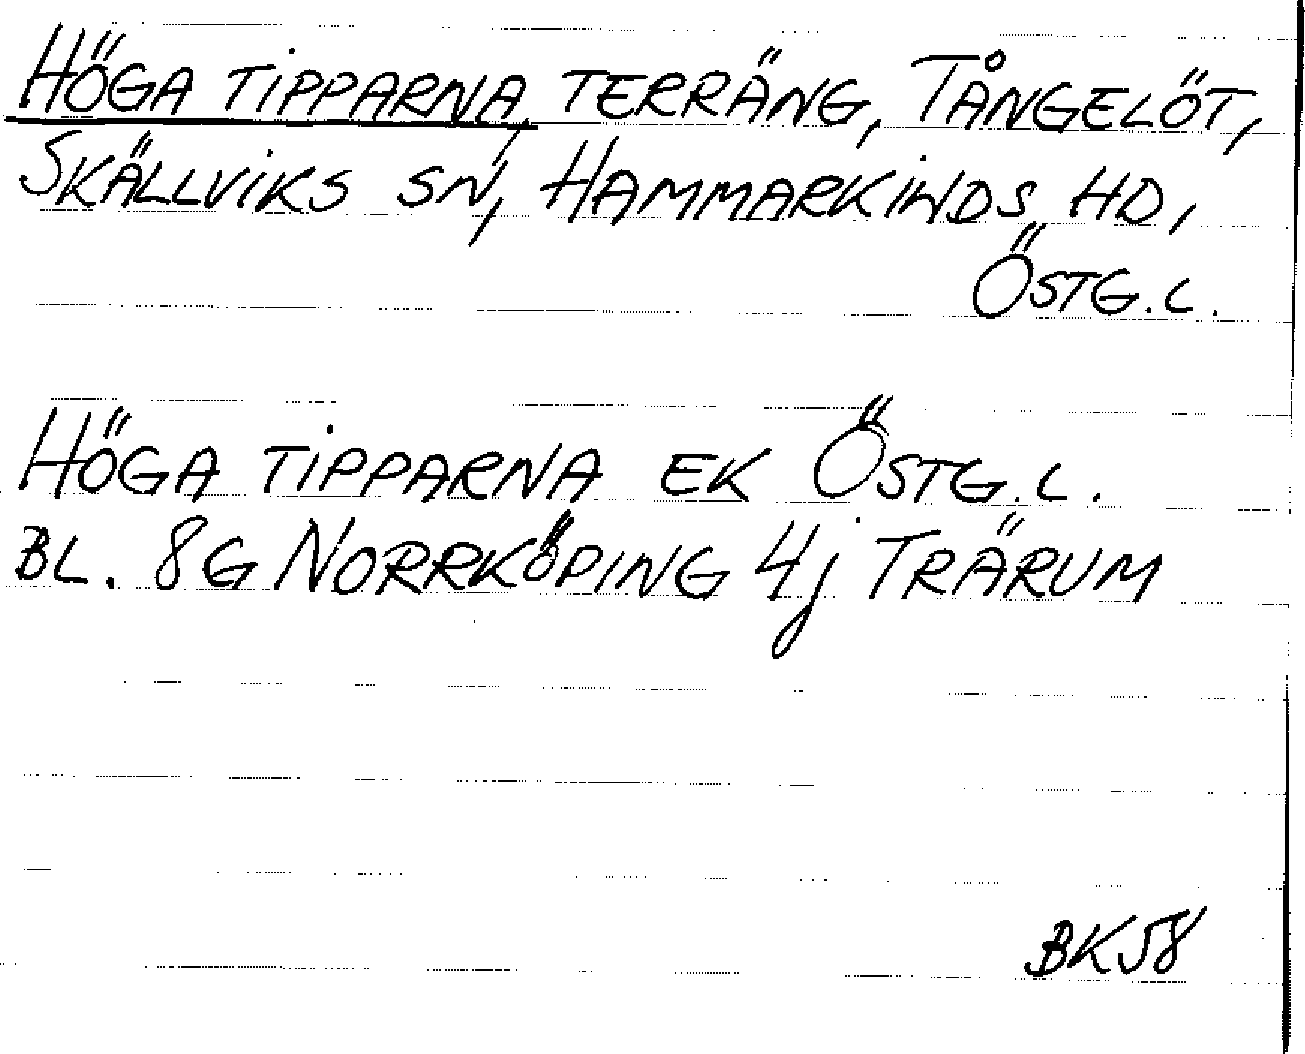 HÖGA TIPPARNA, TERRÄNG, TÅNGELÖT,
SKÄLLVIKS SN, HAMMARKINDS HD,
ÖSTG.L.
HÖGA TIPPARNA EK ÖSTG.L.
BL. 8G NORRKÖPING 4j TRÄRUM
BK58